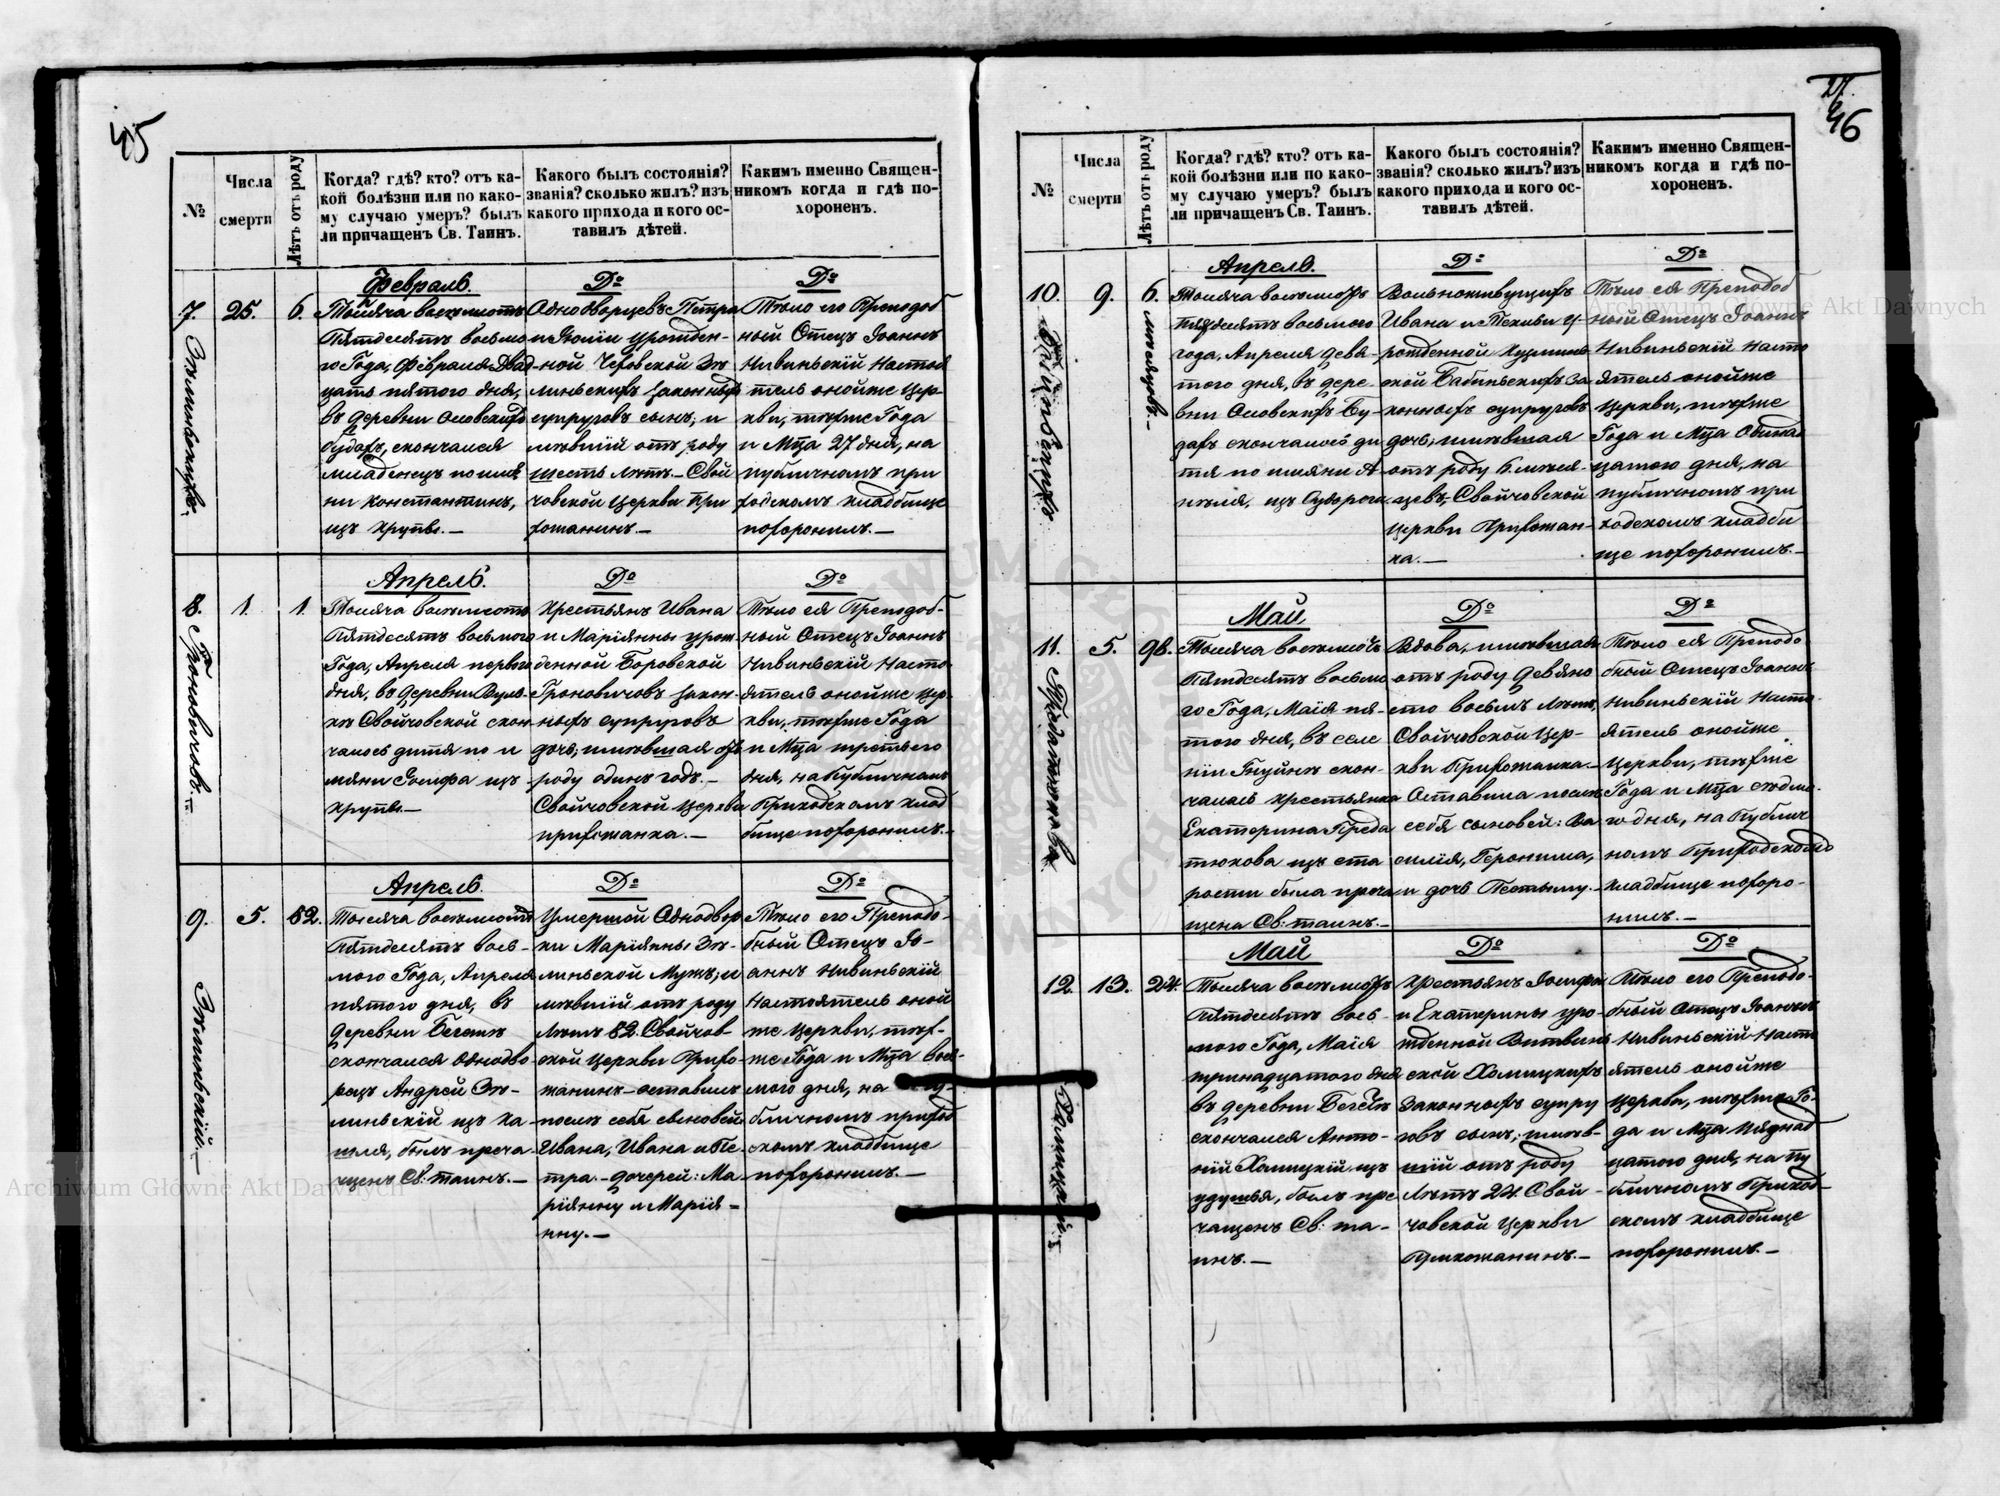 45
№
Числа смерти
Лѣтъ отъ роду
Когда? гдѣ? кто? отъ ка-
кой болѣзни или по како-
му случаю умеръ? былъ
ли причащенъ Св. Таинъ.
Какого былъ состоянія?
званія? сколько жилъ? изъ
какого прихода и кого ос-
тавилъ дѣтей.
Каким именно Священ-
никомъ когда и гдѣ по-
хороненъ.
7.
25.
6.
Февраль.
Тысяча восемьсотъ
Пятдесятъ восьмо
го Года, Февраля Двад
цать пятого дня,
въ деревни Осовскихъ
будахъ, скончался
младенецъ по имя
ни Константинъ,
изъ крупы.—
До
Однодворцевъ Петра
и Юліи урожден-
ной Чеховской Зе
линьскихъ законныхъ
супруговъ сынъ, и
мѣвшій отъ роду
шесть лѣтъ.— Свой
човской Церкви При
хожанинъ.—
До
Тѣло его Преподоб
ный Отецъ Іоаннъ
Нивиньскій Настоя
тель онойже Цер-
кви, тѣхже Года
и Мца 27 дня, на
публичномъ при
ходскомъ кладбище
похоронилъ.—
8.
1.
1.
Апрель.
Тысяча восемьсотъ
Пятдесятъ восьмого
Года, Апреля перваго
дня, въ деревни Вуль-
ке Свойчовской скон
чалось дитя по и
мяни Іосифа изъ
крупы.—
До
Крестьянъ Ивана
и Маріянны урож-
денной Боровской
Гроновичовъ закон-
ныхъ супруговъ
дочь; имѣвшая отъ
роду одинъ годъ.—
Свойчовской Церкви
прихожанка.—
До
Тѣло ея Преподоб-
ный Отецъ Іоаннъ
Нивиньскій Насто-
ятель онойже Цер-
кви, тѣхже Года
и Мца третьего
дня, на Публичномъ
Приходскомъ клад
бище похоронилъ.—
9.
5.
82.
Зелиньскій.—
Апрель.
Тысяча восемьсотъ
Пятдесятъ вось-
мого Года, Апреля
пятого дня, въ
деревни Бегетъ
скончался Однодво
рецъ Андрей Зе-
линьскій изъ ка-
шля, былъ прича
щенъ Св: таинъ.—
До
Умершой Однодвор
ки Маріянны Зе-
линьской Мужъ; и
мѣвшій отъ роду
Лѣтъ 82. Свойчов-
ской Церкви Прихо-
жанинъ- оставилъ
послѣ себя сыновей
Ивана, Ивана и Пе
тра.- дочерей: Ма-
ріянну и Марія-
нну.—
До
Тѣло его Преподо-
бный Отецъ Іо-
аннъ Нивиньскій
Настоятель оной
же Церкви, тѣх-
же Года и Мца вось-
мого дня, на Пу-
бличномъ приход
скомъ кладбище
похоронилъ.—
46
№
Числа смерти
Лѣтъ отъ роду
Когда? гдѣ? кто? отъ ка-
кой болѣзни или по како-
му случаю умеръ? былъ
ли причащенъ Св. Таинъ.
Какого былъ состоянія?
званія? сколько жилъ? изъ
какого прихода и кого ос-
тавилъ дѣтей.
Какимъ именно Священ-
никомъ когда и гдѣ по-
хороненъ.
10.
9.
6. мѣсяцовъ.
Апрель.
Тысяча восемьсотъ
пятдесятъ восьмого
года, Апреля девя-
того дня, въ дере-
вни Осовскихъ Бу-
дахъ скончалось ди
тя по имяни А-
нѣля, изъ Судороги.
До
Вольноживущихъ
Ивана и Теклии у-
рожденной Кузминь
ской Бабиньскихъ за
конныхъ супруговъ
дочь; имѣвшая
отъ роду 6 мѣся-
цевъ,- Свойчовской
Церкви Прихожан-
ка.—
До
Тѣло ея Преподоб
ный Отецъ Іоаннъ
Нивиньскій Насто
ятель онойже
Церкви, тѣхже
Года и Мца Одинад
цатого дня, на
публичномъ при
ходскомъ кладби
ще похоронилъ.—
11.
5.
98.
Май
Тысяча восемьсотъ
Пятдесятъ восьмо
го Года, Маія пя-
того дня, въ селе
ніи Гнуйнѣ скон-
чалась крестьянка
Екатерина Преда
тюкова изъ ста
рости была прича
щена Св: таинъ.—
До
Вдова, имѣвшая
отъ роду девяно
сто восемь лѣтъ,
Свойчовской Цер-
кви Прихожанка.—
Оставила послѣ
себя сыновей: Ва
силія, Геронима,
и дочь Пестыму.—
До
Тѣло ея Преподо
бный Отецъ Іоаннъ
Нивиньскій Насто-
ятель онойже
Церкви, тѣхже
Года и Мца седмо-
го дня, на Публич
номъ Приходскомъ
кладбище похоро-
нилъ.—
12.
13.
24.
Май
Тысяча восемьсотъ
Пятдесятъ вось-
мого Года, Маія
тринадцатого дня
въ деревни Бегетъ
скончался Анто-
ній Хомицкій изъ
удушья, былъ при
чащенъ Св: та-
инъ.—
До
Крестьянъ Іосифа
и Екатерины уро-
жденной Витвинь
ской Хомицкихъ
Законныхъ супру
говъ сынъ; имѣв-
шій отъ роду
Лѣтъ 24. Свой-
човской Церкви
Прихожанинъ.—
До
Тѣло его Преподо-
бный Отецъ Іоаннъ
Нивиньскій Насто
ятель онойже
Церкви, тѣхже Го-
да и Мца Пяднад
цатого дня, на пу
бличномъ Приход-
скомъ кладбище
похоронилъ.—
Archiwum Główne Akt Dawnych
Archiwum Główne Akt Dawnych